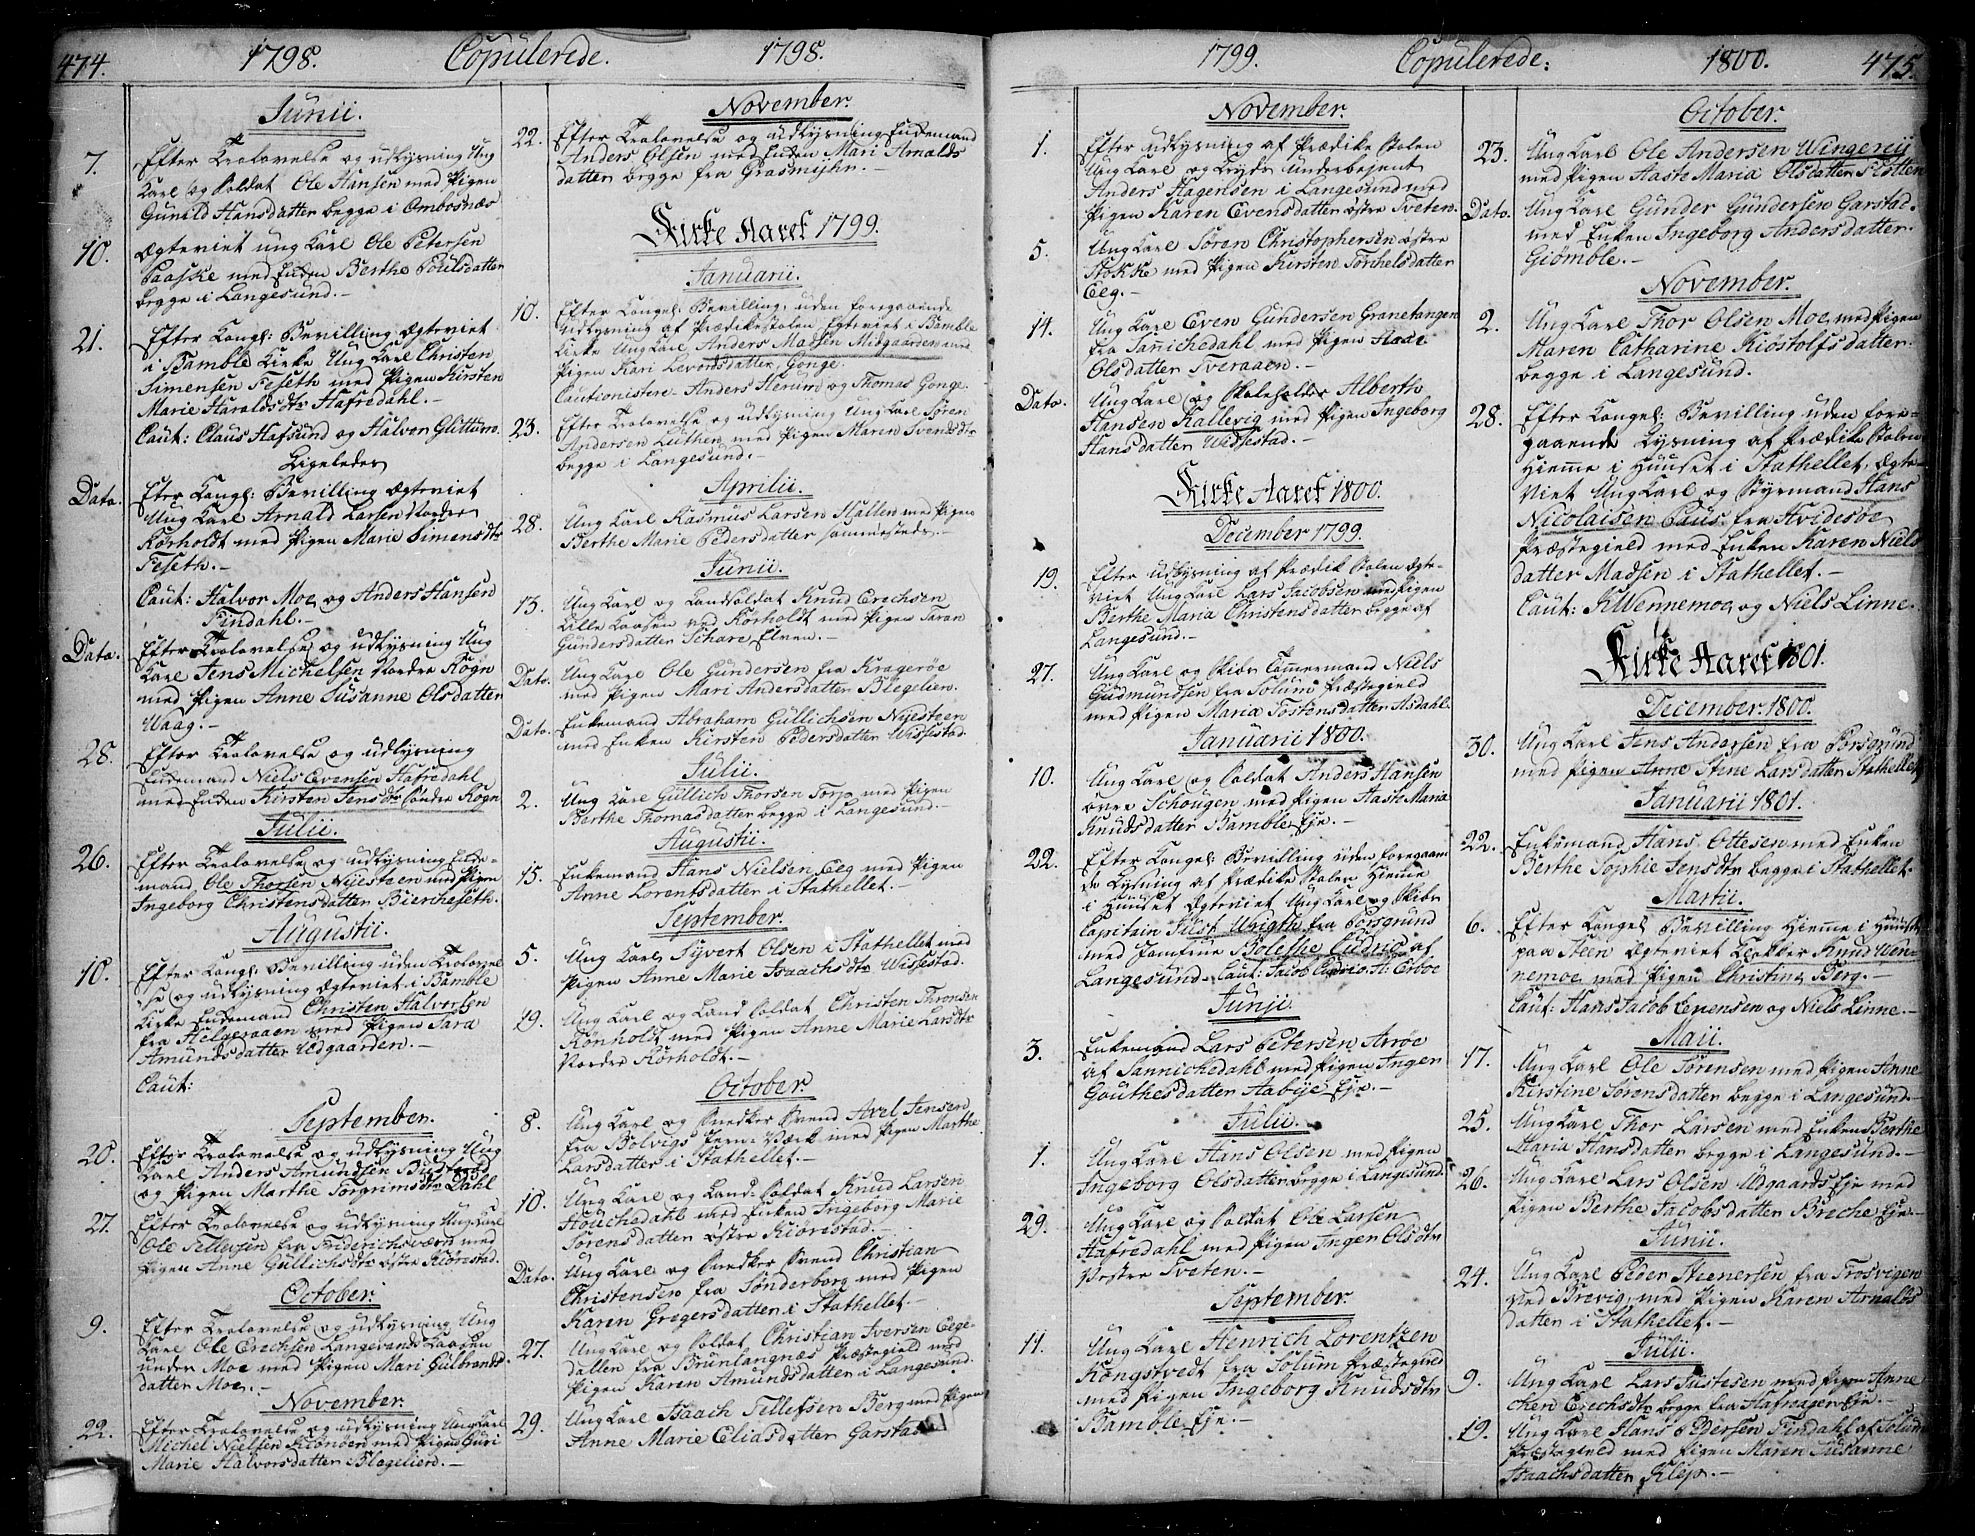 474. 1798. Copulerede. 1798.
Junii.
7. Efter Trolovelse og udlysning Ung
Karl og Soldat Ole Hansen med Pigen
Gunild Hansdatter begge i Ombosnæs
10. Ægteviet ung Karl Ole Petersen
Paaske med Enken Berthe Poulsdatter
begge i Langesund.-
21. Efter Kongl: Bevilling Ægteviet
i Bamble Kirke Ung Karl Christen
Simensen Feseth med Pigen Kirsten
Marie Haraldsdtr Hafredahl.-
Caut: Claus Hafsund og Halvor Glittum.
Ligeledes
Dato. Efter Kongl: Bevilling Ægteviet
Ung Karl Arnald Larsen Nordre
Rörholdt med Pigen Marie Simensdtr
Feseth.-
Caut: Halvor Moe og Anders Hansen
Findahl.-
Dato. Efter Trolovelse og udlysning Ung
Karl Jens Michelsen Nordre Rögn
med Pigen Anne Susanne Olsdatter
Waag.-
28. Efter Trolovelse og udlysning
Enkemand Niels Evensen Hafredahl
med Enken Kirsten Jensdtr Söndre Rögn
Julii.
26. Efter Trolovelse og udlysning Enke-
mand Ole Thorsen Nyesteen med Pigen
Ingeborg Christensdatter Bierkeseth.
Augustii.
10. Efter Kongl: Bevilling uden Trolovel
se og udlysning Ægteviet i Bamble
Kirke Enkemand Christen Halvorsen
fra Helgeraaen med Pigen Sara
Amundsdatter Udgaarden.-
Caut:
September.
20. Efter Trolovelse og udlysning Ung
Karl Anders Amundsen
og Pigen Marthe Torgrimsdtr Dahl
27. Efter Trolovelse og udlysning Ung Karl
Ole Tellefsen fra Friderichsværn med
Pigen Anne Gullichsdtr östre Kiörestad.
October.
9. Efter Trolovelse og udlysning Ung
Karl Ole Erichsen Langevands Kaasen
under Moe med Pigen Mari Gulbrands-
datter Moe.-
November.
22. Efter Trolovelse og udlysning Ung Karl
Michel Nielsen med Pigen Guri
Marie Halvorsdatter Blegelien.-
November.
22. Efter Trolovelse og udlysning Enkemand
Anders Olsen med Enken Mari Arnalds
datter begge fra Grasmyhr.-
Kirke Aaret 1799.
Januarii.
10. Efter Kongel: Bevilling, uden foregaaende
Udlysning af Prædikestolen Ægteviet i Bamble
Kirke Ung Karl Anders Madsen Midgaarden med
Pigen Kari Levorsdatter Gonge.
Cautionistere Anders Herum og Thomas Gonge.
23. Efter Trolovelse og udlysning Ung Karl Sören
Andersen Luthen med Pigen Maren Svendsdtr
begge i Langesund.-
Aprilii.
28. Ung Karl Rasmus Larsen Hallen med Pigen
Berthe Marie Pedersdatter sammesteds.-
Junii.
13. Ung Karl og Landsoldat Knud Erichsen
Lille Kaasen ved Rörholdt med Pigen Taran
Gundersdatter Elven.-
Dato. Ung Karl Ole Gundersen fra Kragerøe
med Pigen Mari Andersdatter Blegelien.
Dato. Enkemand Abraham Gullichsen Nyesteen
med Enken Kirsten Pedersdatter Wissestad.
Julii.
2. Ung Karl Gullich Thorsen Torp med Pigen
Berthe Thomasdatter begge i Langesund.-
Augustii.
15. Enkemand Hans Nielsen Eeg med Pigen
Anne Lorentsdatter i Stathellet.-
September.
5. Ung Karl Syvert Olsen i Stathellet med
Pigen Anne Marie Isaachsdtr Wissestad.
19. Ung Karl og Land Soldat Christen Thronsen
Rönholdt med Pigen Anne Marie Larsdtr
Nordre Rörholdt.-
October.
8. Ung Karl og Smedker Svend Axel Jensen
fra Bolvigs Jern-Værk med Pigen Marthe
Larsdatter i Stathellet.-
10. Ung Karl og Land-Soldat Knud Larsen
med Enken Ingeborg Marie
Sörensdatter östre Kiörestad.-
Dato. Ung Karl og Smedker Svend Christian
Christensen fra Sönderborg med Pigen
Karen Gregersdatter i Stathellet.-
27. Ung Karl og Soldat Christian Iversen Eege-
dallen fra Brunlangnæs Præstegield med
Pigen Karen Amundsdatter i Langesund.
29. Ung Karl Isaach Tellefsen Berg med Pigen
Anne Marie Eliasdatter Garstad
1799. Copulerede: 1800. 475.
November.
1. Efter udlysning af Prædike Stolen
Ung Karl og Underbetient
Anders Hagensen i Langesund med
Pigen Karen Evensdatter östre Tveten.
5. Ung Karl Sören Christophersen östre
Stokke med Pigen Kirsten Torchelsdatter
Eeg.-
14. Ung Karl Even Gundersen Granetangen
fra Sannichedahl med Pigen
Olsdatter Tveraaen.-
Dato. Ung Karl og Skoleholder Alberth
Hansen Kallevig med Pigen Ingeborg
Hansdatter Wissestad.-
Kirke Aaret 1800.
December 1799.
19. Efter udlysning af Prædik Stolen Ægte-
viet Ung Karl Lars Jacobsen med Pigen
Berthe Maria Christensdatter begge af
Langesund.-
27. Ung Karl og Skibs Tömmermand Niels
Gudmundsen fra Solum Præstegield
med Pigen Maria Tostensdatter Asdahl.
Januarii 1800.
10. Ung Karl og Soldat Anders Hansen
övre Schougen med Pigen Aaste Maria
Knudsdatter Bamble Eje.-
22. Efter Kongel: Bevilling uden foregaaen-
de Lysning af Prædike Stolen Hiemme
i Huuset Ægteviet Ung Karl og Skibs
Capitein Wrigth fra Porsgrund
med Jomfrue Bolethe Cudrio af
Langesund. Caut: Jacob Cudrio A: Esboe
Junii
3. Enkemand Lars Petersen Arröe
af Sannichedahl med Pigen Ingen
Gouthesdatter Aabye Eje.-
Julii.
1. Ung Karl Hans Olsen med Pigen
Ingeborg Olsdatter begge i Langesund.
29. Ung Karl og Soldat Ole Larsen
Hafredahl med Pigen Ingen Olsdtr
Vestre Tveten.-
September.
11. Ung Karl Henrich Lorentzen
Kongstvedt fra Solum Præstegield
med Pigen Ingeborg Knudsdtr
Bamble Eje.-
October.
23. Ung Karl Ole Andersen Wingereij
med Pigen Aaste Maria Olsdatter
Dato. Ung Karl Gunder Gundersen Garstad.
med Enken Ingeborg Andersdatter
Giömble.-
November.
2. Ung Karl Thor Olsen Moe med Pigen
Maren Catharine Kiostolfsdatter
begge i Langesund.
28. Efter Kongel: Bevilling uden fore-
gaaende Lysning af Prædike Stolen
Hieme i Huuset i Stathellet, Ægte-
viet Ung Karl og Styrmand Hans
Nicolaisen Paus fra Hvidesøe
Præstegield med Enken Karen Niels
datter Madsen i Stathellet.-
Caut: K Wennemoe og Niels Linne.
Kirke Aaret 1801.
December 1800.
30. Ung Karl Jens Andersen fra Porsgrund
med Pigen Anne Stine Larsdatter Stathellet
Januarii 1801.
22. Enkemand Hans Ottesen med Enken
Berthe Sophie Jensdtr begge i Stathellet.
Martii.
6. Efter Kongel Bevilling Hieme i Huuset
paa Steen Ægteviet Klokker Knud Wen-
nemoe med Pigen Christine Berg.-
Caut: Hans Jacob Eepensen og Niels Linne.-
Maii.
17. Ung Karl Ole Sörensen med Pigen Anne
Kirstine Sörensdatter begge i Langesund.
25. Ung Karl Thor Larsen med Enken Berthe
Maria Hansdatter begge i Langesund.-
26. Ung Karl Lars Olsen Udgaards Eje med
Pigen Berthe Jacobsdatter Breche Eje.-
Junii.
24. Ung Karl Peder Steenersen fra Trosvigen
ved Brevig, med Pigen Karen Arnalds
datter i Stathellet.-
Julii.
9. Ung Karl Lars Justesen med Pigen Anne
Erichsdtr begge fra Hafragen Eje.-
19. Ung Karl Hans Pedersen Findahl af Solum
Præstegield med Pigen Maren Susanne
Isaachsdatter Klep.-